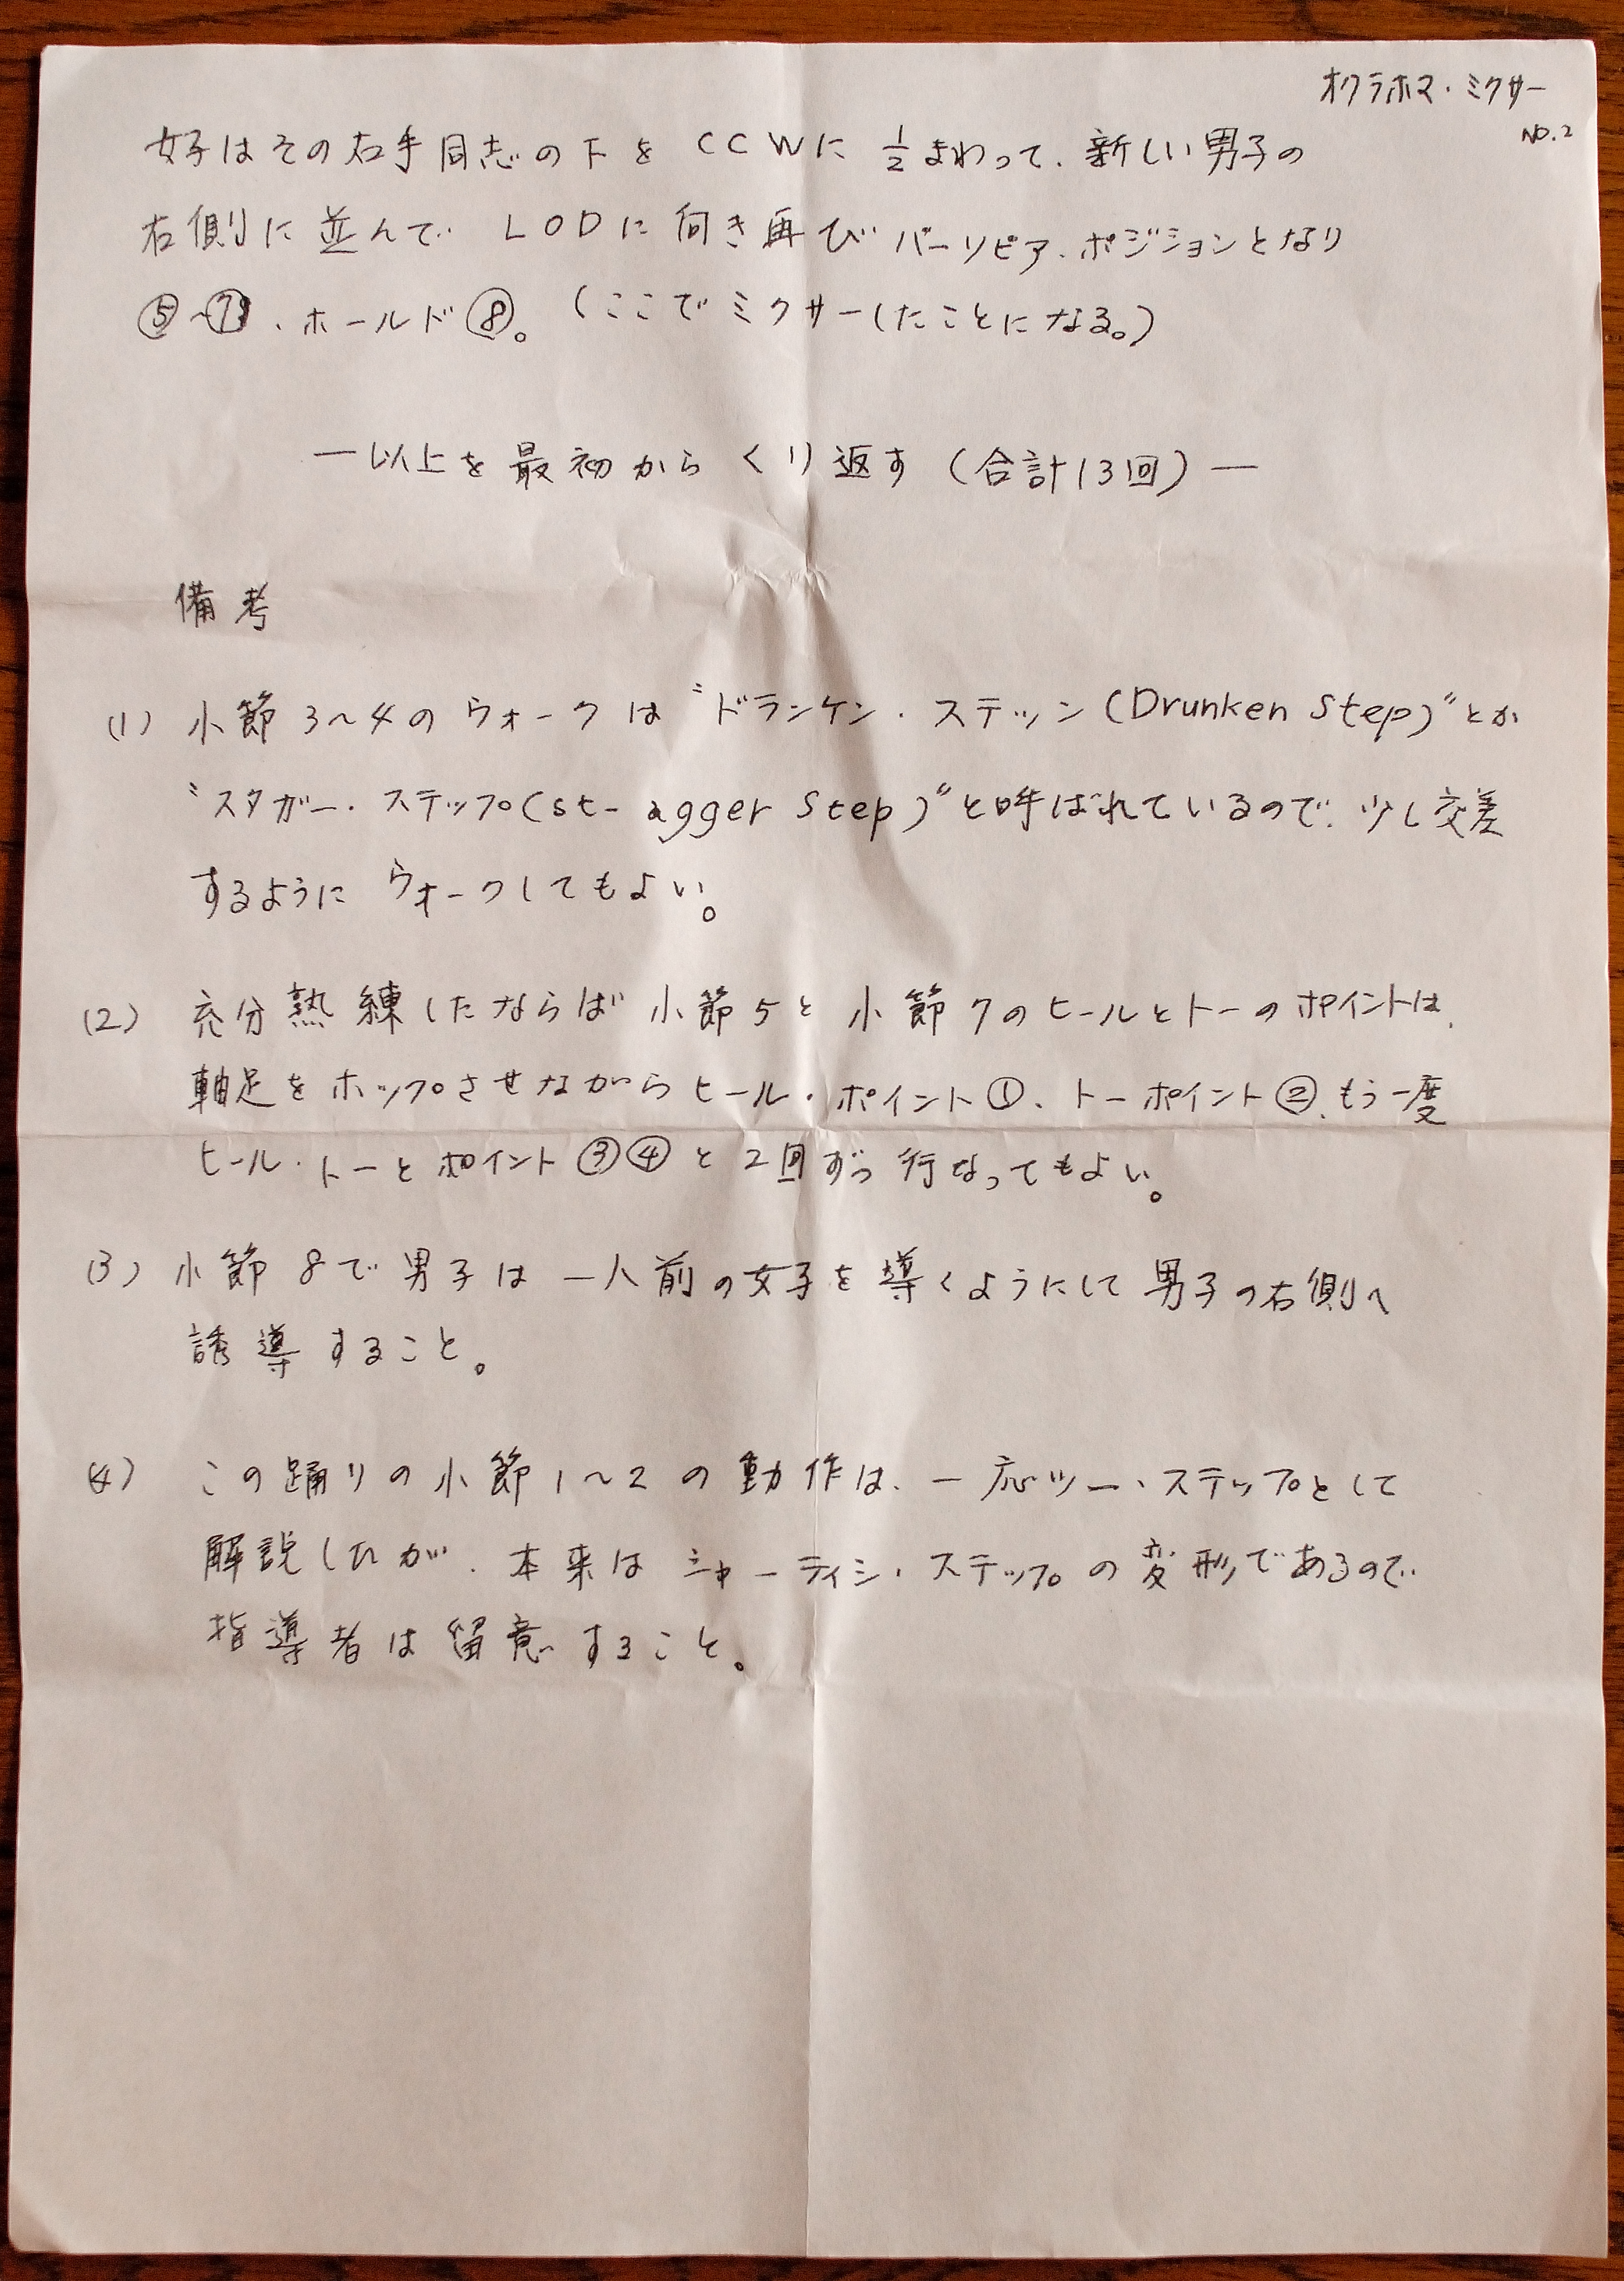 オクラホマ・ミクサー
NO.2
女子はその右手同志の下を CCWに ½まわって、新しい男子の
右側に並んで LODに向き再び バーソビア・ポジションとなり
⑤〜⑦、ホールド⑧。(ここでミクサーしたことになる。)
―以上を最初からくり返す(合計13回)―
備考
(1) 小節3〜4のウォークは〝ドランケン・ステップ(Drunken Step)〟とか
〝スタガー・ステップ(st- agger Step)〟と呼ばれているので、少し交差
するように ウォークしてもよい。
(2) 充分熟練したならば 小節5と小節7のヒールとトーのポイントは、
軸足をホップさせながらヒール・ポイント①、トーポイント②、もう一度
ヒール・トーとポイント③④と2回ずつ行なってもよい。
(3) 小節8で男子は一人前の女子を導くようにして男子の右側へ
誘導すること。
(4) この踊りの小節1〜2の動作は、一応ツー・ステップとして
解説したが、本来はシャーティシ・ステップの変形であるので
指導者は留意すること。